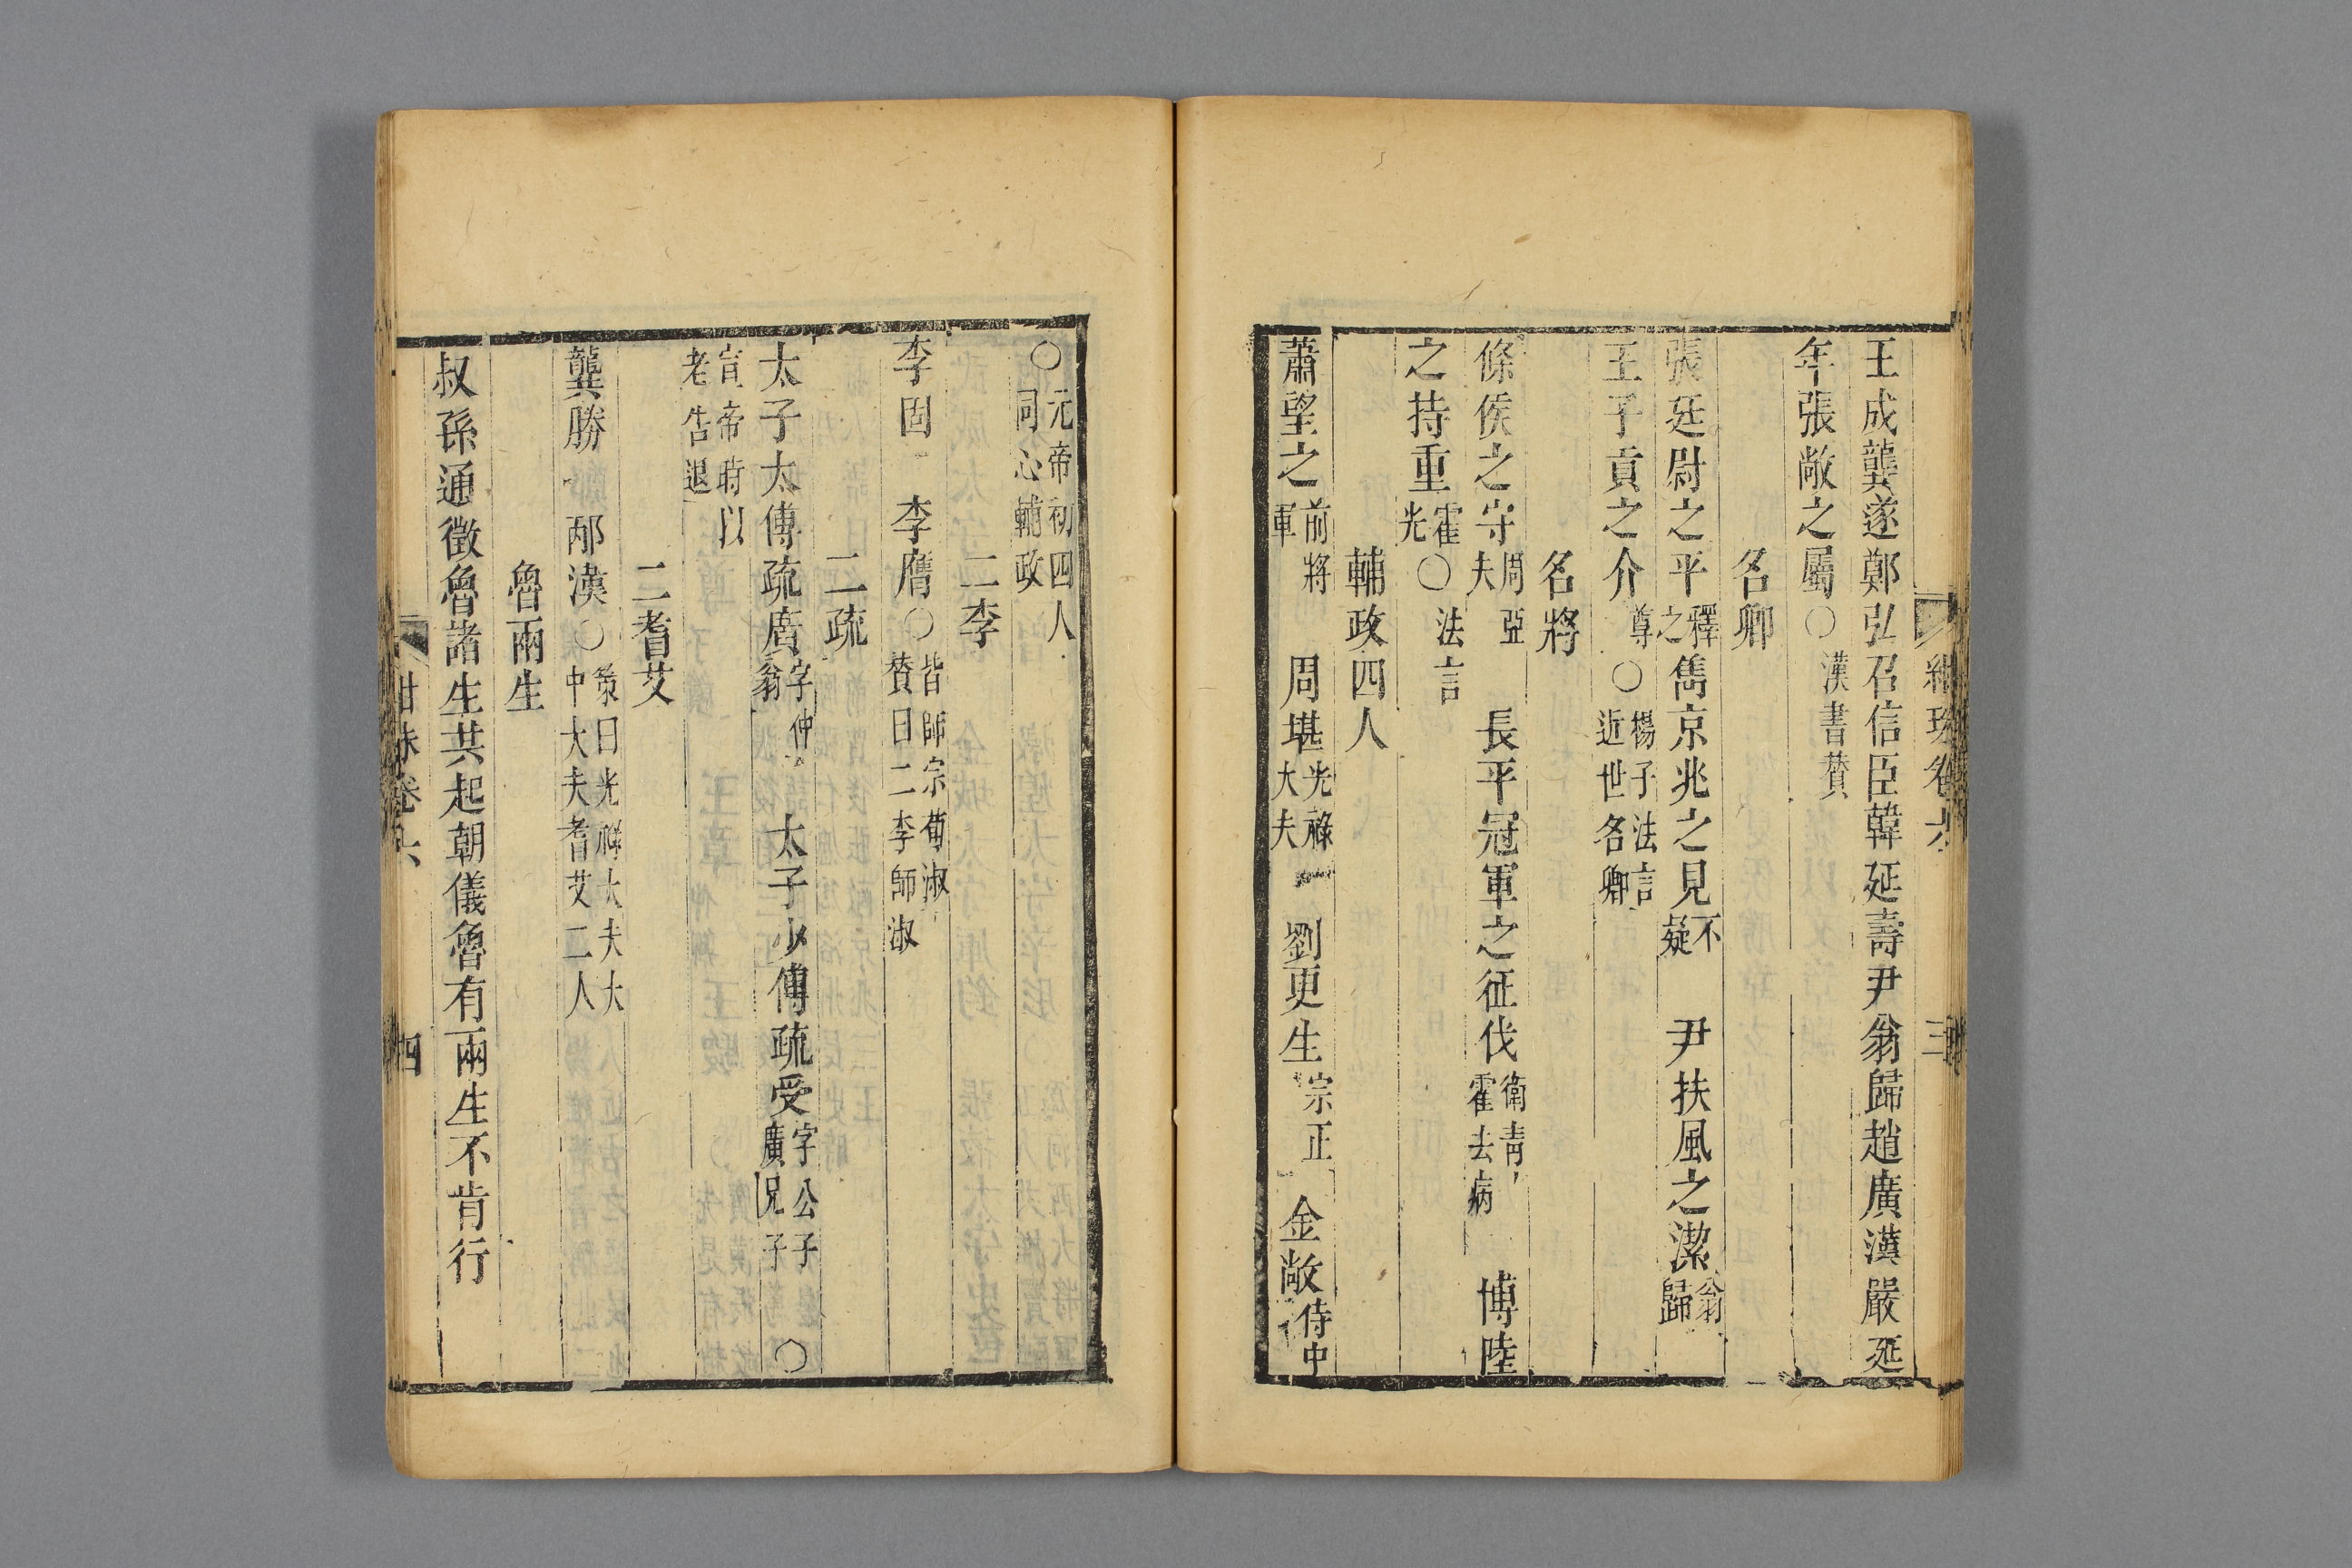 紺珠卷六 三
王成龔遂鄭弘召信臣韓延壽尹翁歸趙廣漢嚴延
年張敞之屬○漢書贊
名卿
張廷尉之平釋之 雋京兆之見不疑 尹扶風之潔翁歸
王子貢之介尊○楊子法言近世名卿
名將
條侯之守周亞夫 長平冠軍之征伐衛青霍去病 博陸
之持重霍光○法言
輔政四人
蕭望之前將軍 周堪光祿大夫 劉更生宗正 金敞侍中
○元帝初四人同心輔政
二李
李固 李膺○皆師宗荀淑贊曰二李師淑
二疏
太子太傅疏廣字仲翁 太子少傅疏受字公子廣兄子○
宣帝時以老告退
二耆艾
龔勝 邴漢○策曰光祿大夫大中大夫耆艾二人
魯兩生
叔孫通徵魯諸生共起朝儀魯有兩生不肯行
紺珠卷六 四